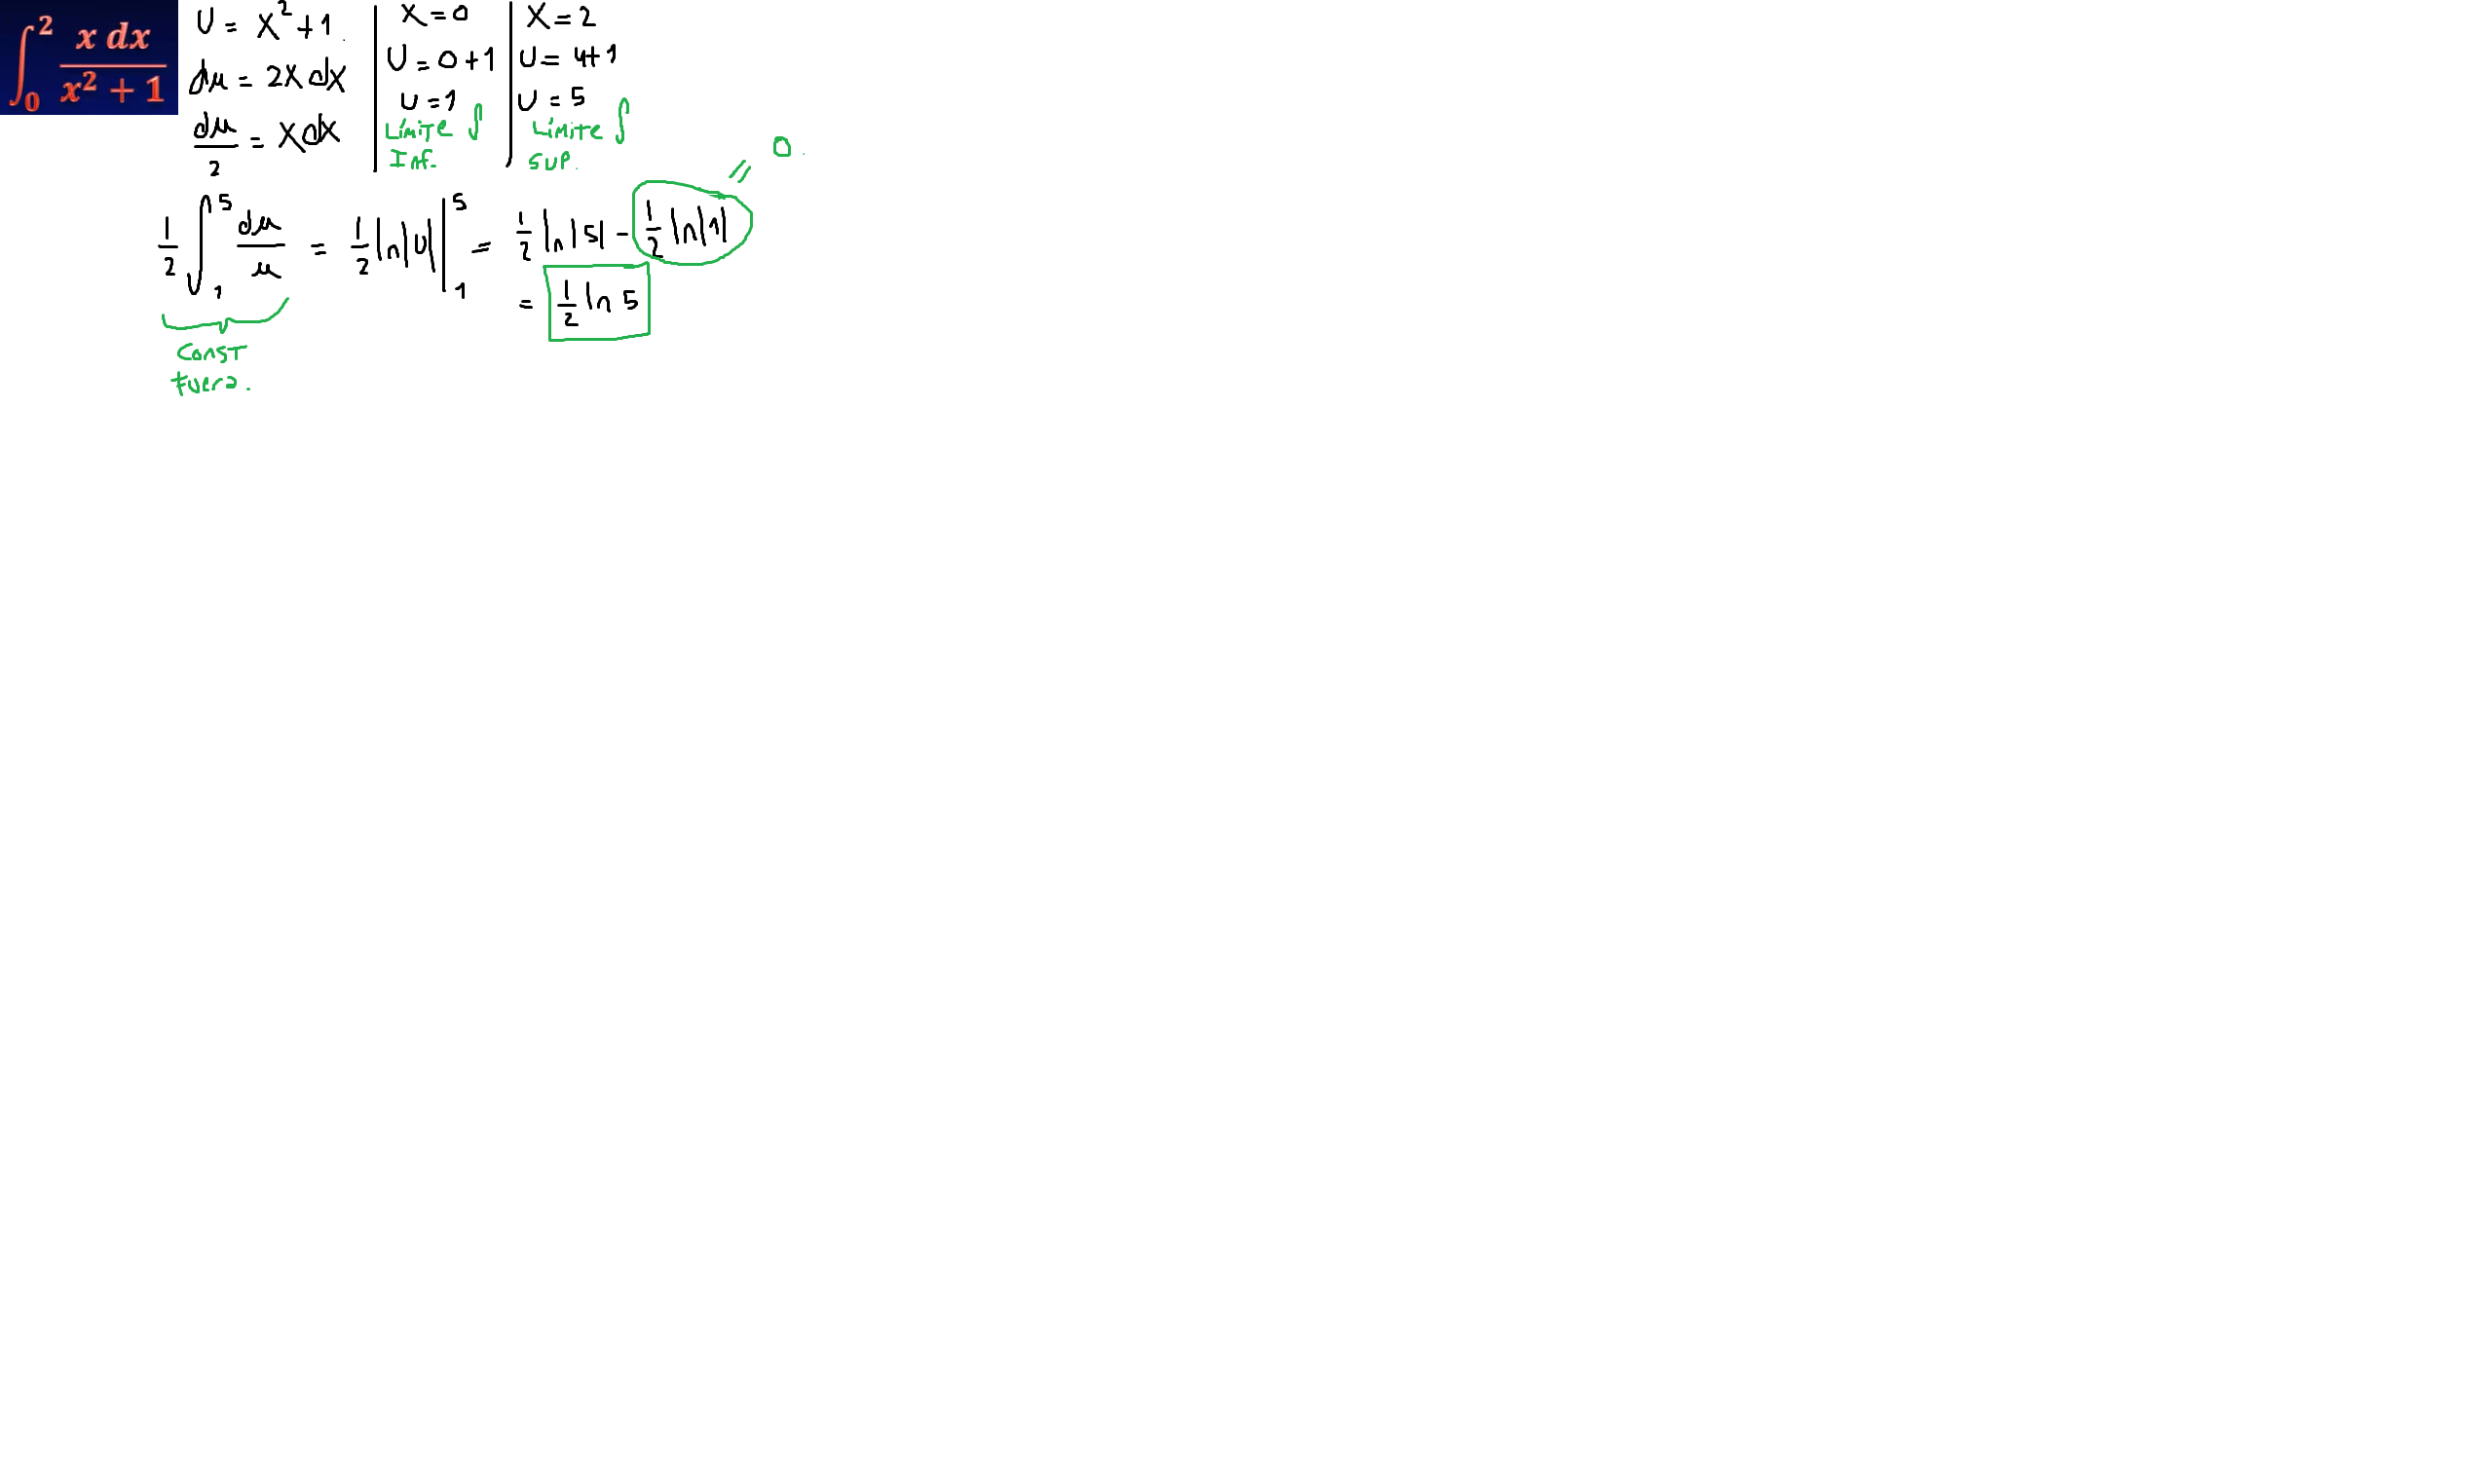 ∫₀² x dx / (x² + 1)
U = x² + 1
du = 2x dx
du/2 = x dx
x = 0
U = 0 + 1
U = 1
Límite ∫
Inf.
x = 2
U = 4 + 1
U = 5
Límite ∫
sup.
1/2 ∫₁⁵ du/u = 1/2 ln|U| |₁⁵ = 1/2 ln|5| - 1/2 ln|1|
= 0
= 1/2 ln 5
const
fuera.